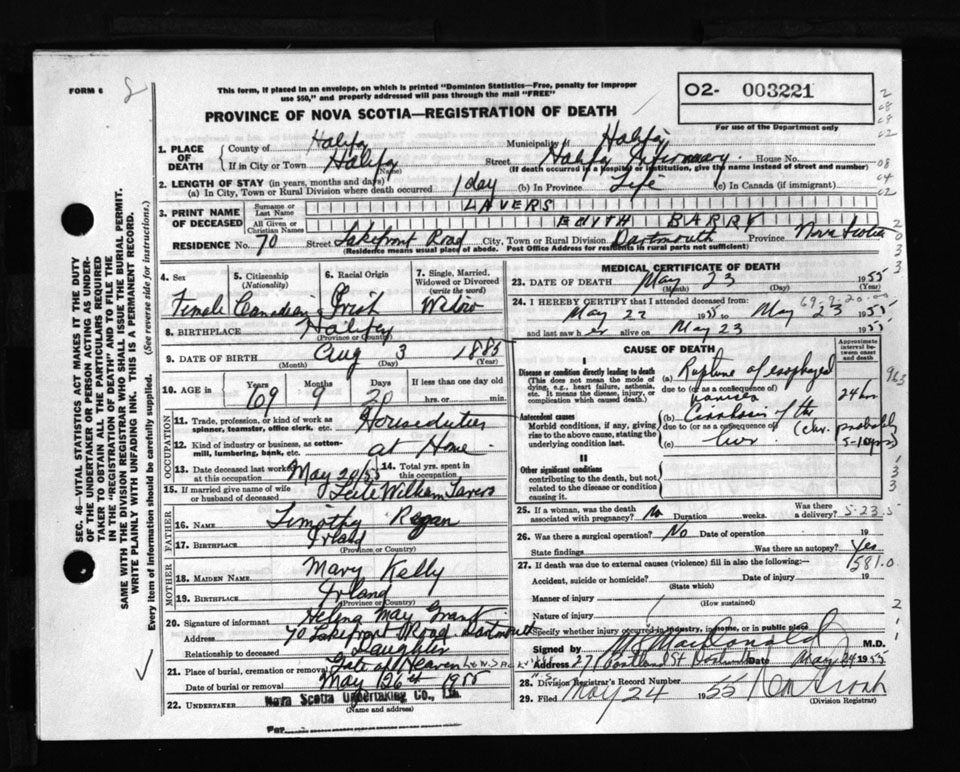 FORM 6
This form, if placed in an envelope, on which is printed "Dominion Statistics—Free, penalty for improper
use $50," and properly addressed will pass through the mail "FREE"
PROVINCE OF NOVA SCOTIA—REGISTRATION OF DEATH
O2- 003221
For use of the Department only
SEC. 46—VITAL STATISTICS ACT MAKES IT THE DUTY
OF THE UNDERTAKER OR PERSON ACTING AS UNDER-
TAKER TO OBTAIN ALL THE PARTICULARS REQUIRED
IN THE "REGISTRATION OF DEATH" AND TO FILE THE
SAME WITH THE DIVISION REGISTRAR WHO SHALL ISSUE THE BURIAL PERMIT.
WRITE PLAINLY WITH UNFADING INK. THIS IS A PERMANENT RECORD.
Every item of information should be carefully supplied. (See reverse side for instructions.)
1. PLACE OF DEATH County of Halifax Municipality of Halifax
If in City or Town Halifax Street Halifax Infirmary. House No.
(Name) (If death occurred in a hospital or institution, give the name instead of street and number)
2. LENGTH OF STAY (in years, months and days)
(a) In City, Town or Rural Division where death occurred 1 day (b) In Province Life (c) In Canada (if immigrant)
3. PRINT NAME OF DECEASED Surname or Last Name LAVERS
All Given or Christian Names EDITH BARRY
RESIDENCE No. 70 Street Lakefront Road City, Town or Rural Division Dartmouth Province Nova Scotia
(Residence means usual place of abode. Post Office Address for residents in rural parts not sufficient)
4. Sex 5. Citizenship (Nationality) 6. Racial Origin 7. Single, Married, Widowed or Divorced (write the word)
Female Canadian Irish Widow
8. BIRTHPLACE Halifax
(Province or Country)
9. DATE OF BIRTH Aug 3 1885
(Month) (Day) (Year)
10. AGE IN Years Months Days If less than one day old
69 9 20 hrs. or min.
OCCUPATION
11. Trade, profession, or kind of work as spinner, teamster, office clerk, etc. Houseduties
12. Kind of industry or business, as cotton-mill, lumbering, bank, etc. at Home
13. Date deceased last worked at this occupation May 20/55 14. Total yrs. spent in this occupation
15. If married give name of wife or husband of deceased William Lavers
FATHER
16. NAME Timothy Regan
17. BIRTHPLACE Irland
(Province or Country)
MOTHER
18. MAIDEN NAME Mary Kelly
19. BIRTHPLACE Irland
(Province or Country)
20. Signature of informant Helena May Grant
Address 70 Lakefront Road Dartmouth
Relationship to deceased Daughter
21. Place of burial, cremation or removal Gate of Heaven
Date of burial or removal May 26th 1955
22. UNDERTAKER Nova Scotia Undertaking Co., Ltd.
(Name and address)
For
MEDICAL CERTIFICATE OF DEATH
23. DATE OF DEATH May 23 1955
(Month) (Day)
69-9-20-00
24. I HEREBY CERTIFY that I attended deceased from:
May 22 1955 to May 23 1955
and last saw her alive on May 23 1955
CAUSE OF DEATH
Approximate interval between onset and death
I
Disease or condition directly leading to death
(This does not mean the mode of dying, e.g., heart failure, asthenia, etc. It means the disease, injury, or complication which caused death.)
(a) Rupture of esophageal
due to (or as a consequence of)
varices 24 hrs
Antecedent causes
Morbid conditions, if any, giving rise to the above cause, stating the underlying condition last.
(b) Cirrhosis of the
due to (or as a consequence of) probably
(c) liver 5-10 yrs
II
Other significant conditions
contributing to the death, but not related to the disease or condition causing it.
25. If a woman, was the death associated with pregnancy? No Duration weeks. Was there a delivery?
5-23-5
26. Was there a surgical operation? No Date of operation 19
State findings Was there an autopsy? Yes
27. If death was due to external causes (violence) fill in also the following:—
581.0
Accident, suicide or homicide? Date of injury 19
(State which)
Manner of injury
(How sustained)
Nature of injury
Specify whether injury occurred in industry, in home, or in public place
Signed by MacDonald M.D.
Address 27 Portland St Dartmouth Date May 24 1955
28. Division Registrar's Record Number
29. Filed May 24 1955
(Division Registrar)